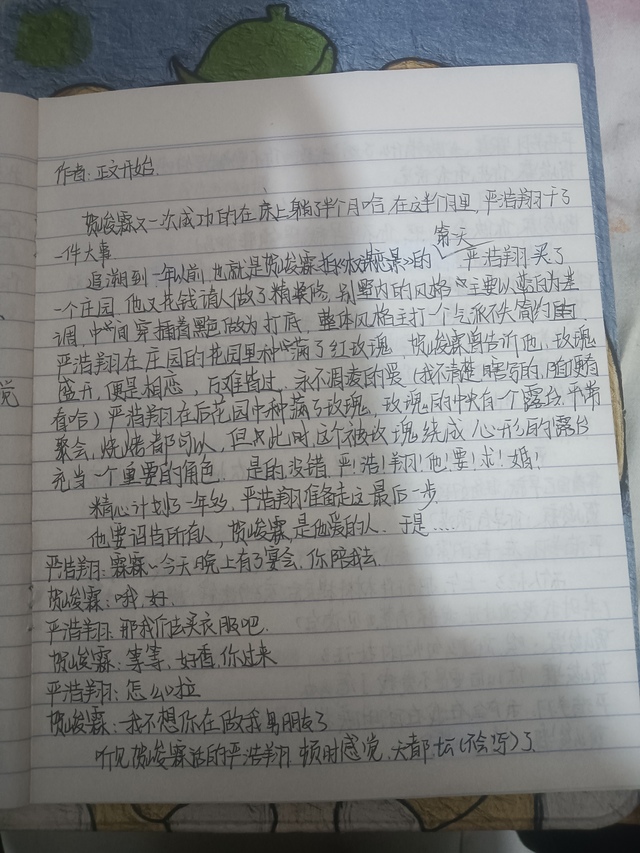 作者:正文开始.
贺峻霖又一次成功的在床上躺了半个月哈,在这半个月里,严浩翔干了
一件大事
追溯到一年以前,也就是贺峻霖拍的 第一天 严浩翔买了
一个庄园,他又花钱请人做了精装修.别墅内的风格 主要以蓝白为差
调,中间穿插着黑色做为打底,整体风格主打一个气派不失简约
严浩翔在庄园的花园里种满了红玫瑰,贺峻霖曾告诉他,玫瑰
盛开,便是相恋, 永不凋麦的爱(我不清楚,瞎写的,
看哈)严浩翔在后花园中种满了玫瑰,玫瑰园的中央有一个露台,平常
聚会,烧烤都可以,但此时这个被玫瑰绕成心形的露台
充当一个重要的角色.是的没错,严!浩!翔!他!要!求!婚!
精心计划了一年多,严浩翔准备走这最后一步
他要诏告所有人,贺峻霖,是他爱的人,于是....
严浩翔:霖霖~今天晚上有了宴会,你陪我去.
贺峻霖:哦,好.
严浩翔:那我们去买衣服吧.
贺峻霖:等等,好香,你过来
严浩翔:怎么啦
贺峻霖:我不想你在做我男朋友了
听见贺峻霖话的严浩翔,顿时感觉,天都坛(不会写)了